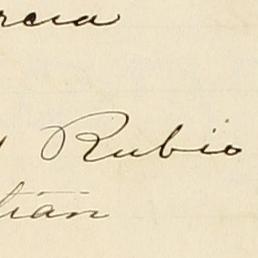 rcia
Rubio
tián